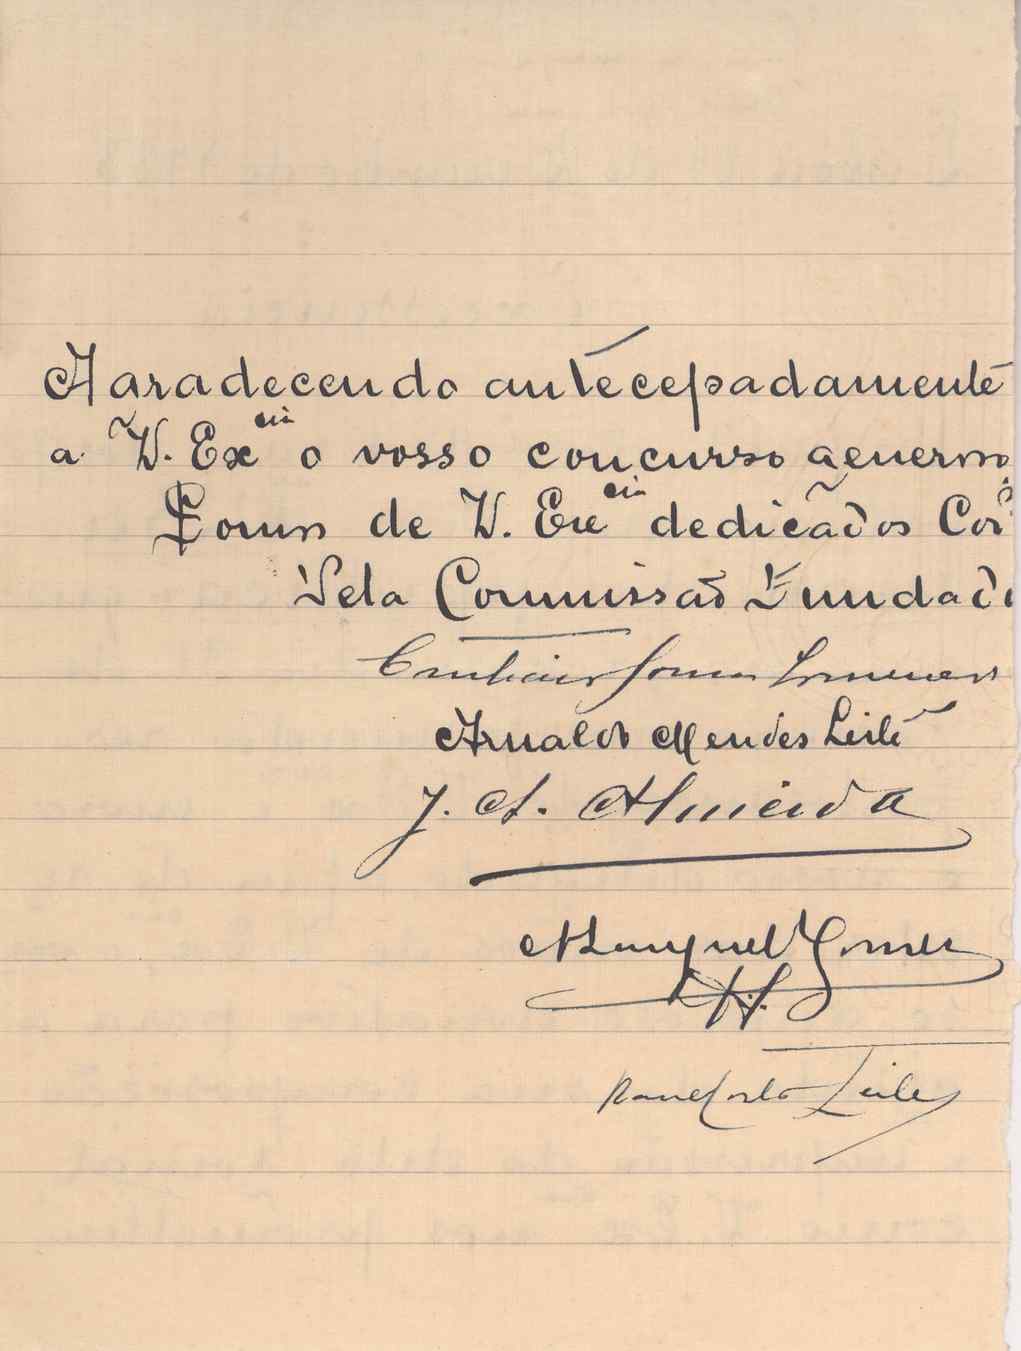 Agradecendo antecepadamente
a V. Excia o vosso concurso generoso
Somos de V. Excia dedicados
Pela Commissão Fundad
Arnaldo Mendes Leite
J. A. Almeida
Manuel Gomes
Raul Costa Leite